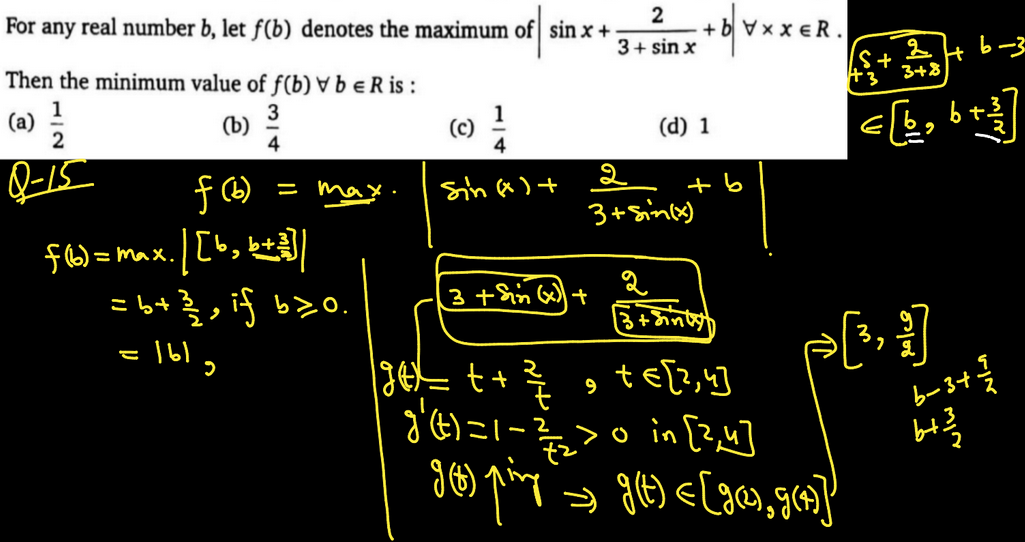 For any real number b, let f(b) denotes the maximum of | sin x + 2/(3 + sin x) + b | ∀ × x ∈ R .
Then the minimum value of f(b) ∀ b ∈ R is :
(a) 1/2 (b) 3/4 (c) 1/4 (d) 1
S + 2/(3+S) + b -3
+3
∈ [b, b + 3/2]
Q-15
f(b) = max. | sin(x) + 2/(3+sin(x)) + b |
f(b) = max. | [b, b+3/2] |
= b + 3/2, if b ≥ 0.
= |b| ,
3 + sin(x) + 2/(3+sin(x))
g(t) = t + 2/t , t ∈ [2,4]
g'(t) = 1 - 2/t² > 0 in [2,4]
g(t) ↑ing ⇒ g(t) ∈ [g(2), g(4)]
⇒ [3, 9/2]
b-3+9/2
b+3/2